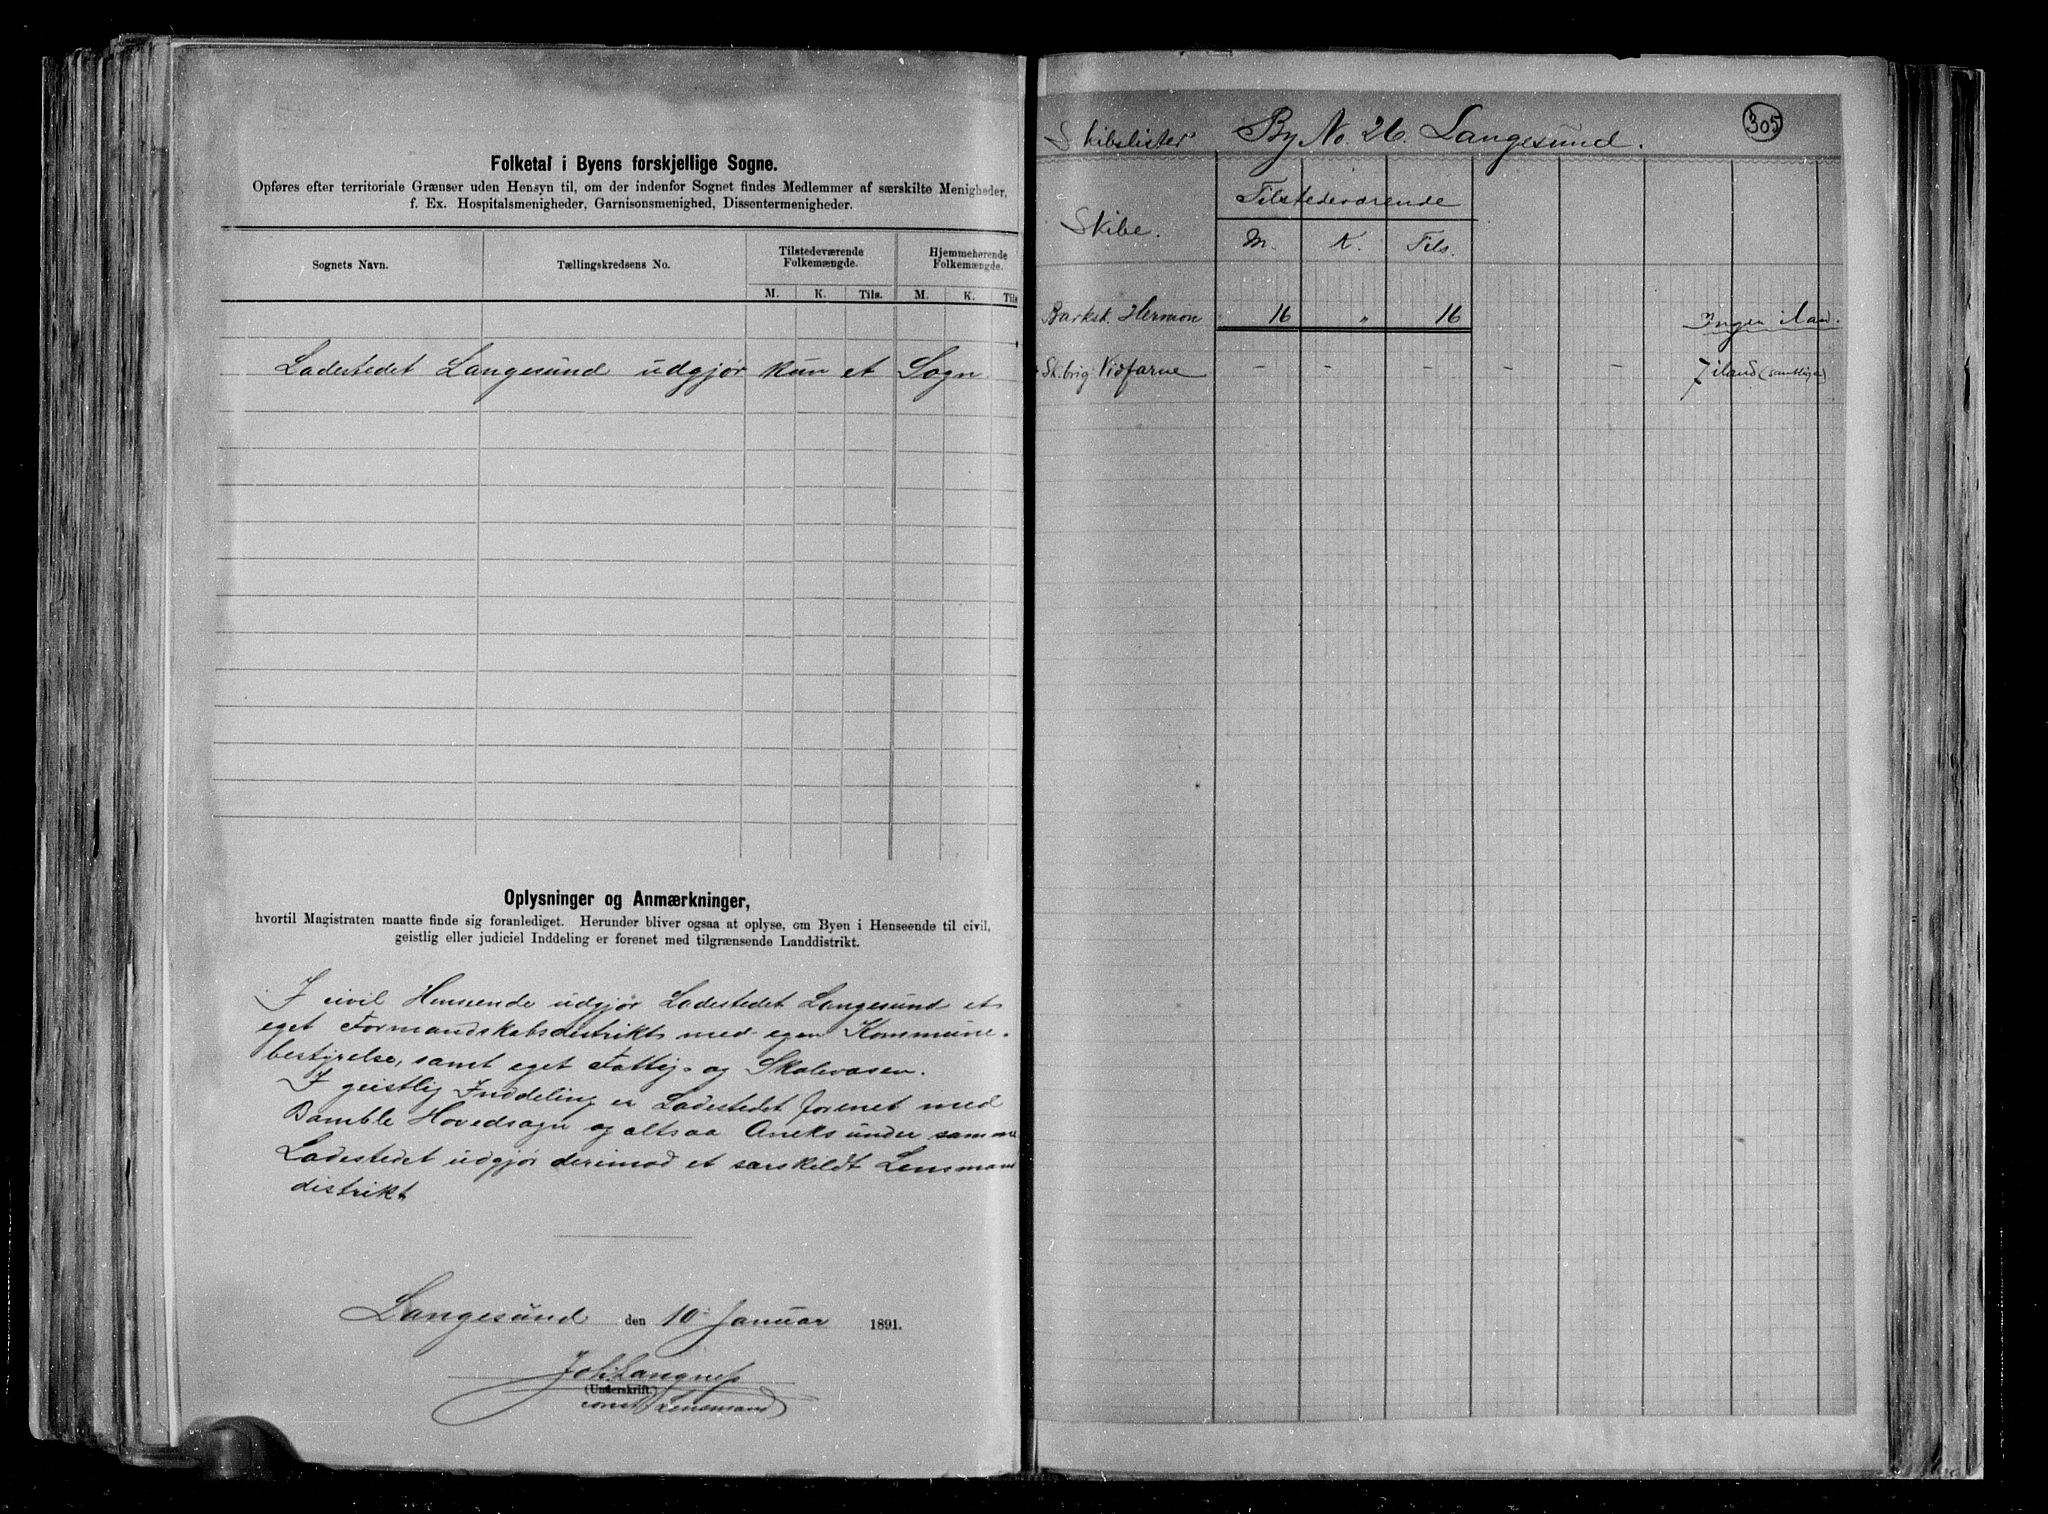 Folketal i Byens forskjellige Sogne.
Opføres efter territoriale Grænser uden Hensyn til, om der indenfor Sognet findes Medlemmer af særskilte Menigheder,
f. Ex. Hospitalsmenigheder, Garnisonsmenighed, Dissentermenigheder.
Sognets Navn. Tællingskredsens No. Tilstedeværende Folkemængde. Hjemmehørende Folkemængde.
M. K. Tils. M. K. Tils
Ladestedet Langesund udgjør kun et Sogn
Oplysninger og Anmærkninger,
hvortil Magistraten maatte finde sig foranlediget. Herunder bliver ogsaa at oplyse, om Byen i Henseende til civil,
geistlig eller judiciel Inddeling er forenet med tilgrænsende Landdistrikt.
I civil Henseende udgjør Ladestedet Langesund et
eget Formandskabsdistrikt med egen Kommune-
bestyrelse, samt eget Fattig- og Skolevæsen.
I geistlig Inddeling er Ladestedet forenet med
Bamble Hovedsogn og altsaa Aneks under samme
Ladestedet udgjør derimod et særskildt Lensmans
distrikt.
Langesund den 10 Januar 1891.
Joh. 
(Underskrift.)
const. Lensmand
305
Skibslister By No. 26. Langesund.
Skibe. Tilstedeværende
M. K. Tils.
Barksk. Hermon 16 " 16 Ingen iland.
Sk. brig Vidfarne - - - - - 7 iland (samtlige)